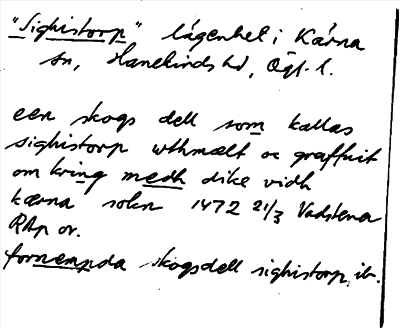 "Sighistorp" lägenhet i Kärna
sn, Hanekinds hd, Ögl. l.
een skogs dell som kallas
sighistorp wthmælt oc graffuit
om kring medh dike vidh
kærna sokn 1472 21/3 Vadstena
RAp or.
fornempda skogsdell sighistorp, ib.